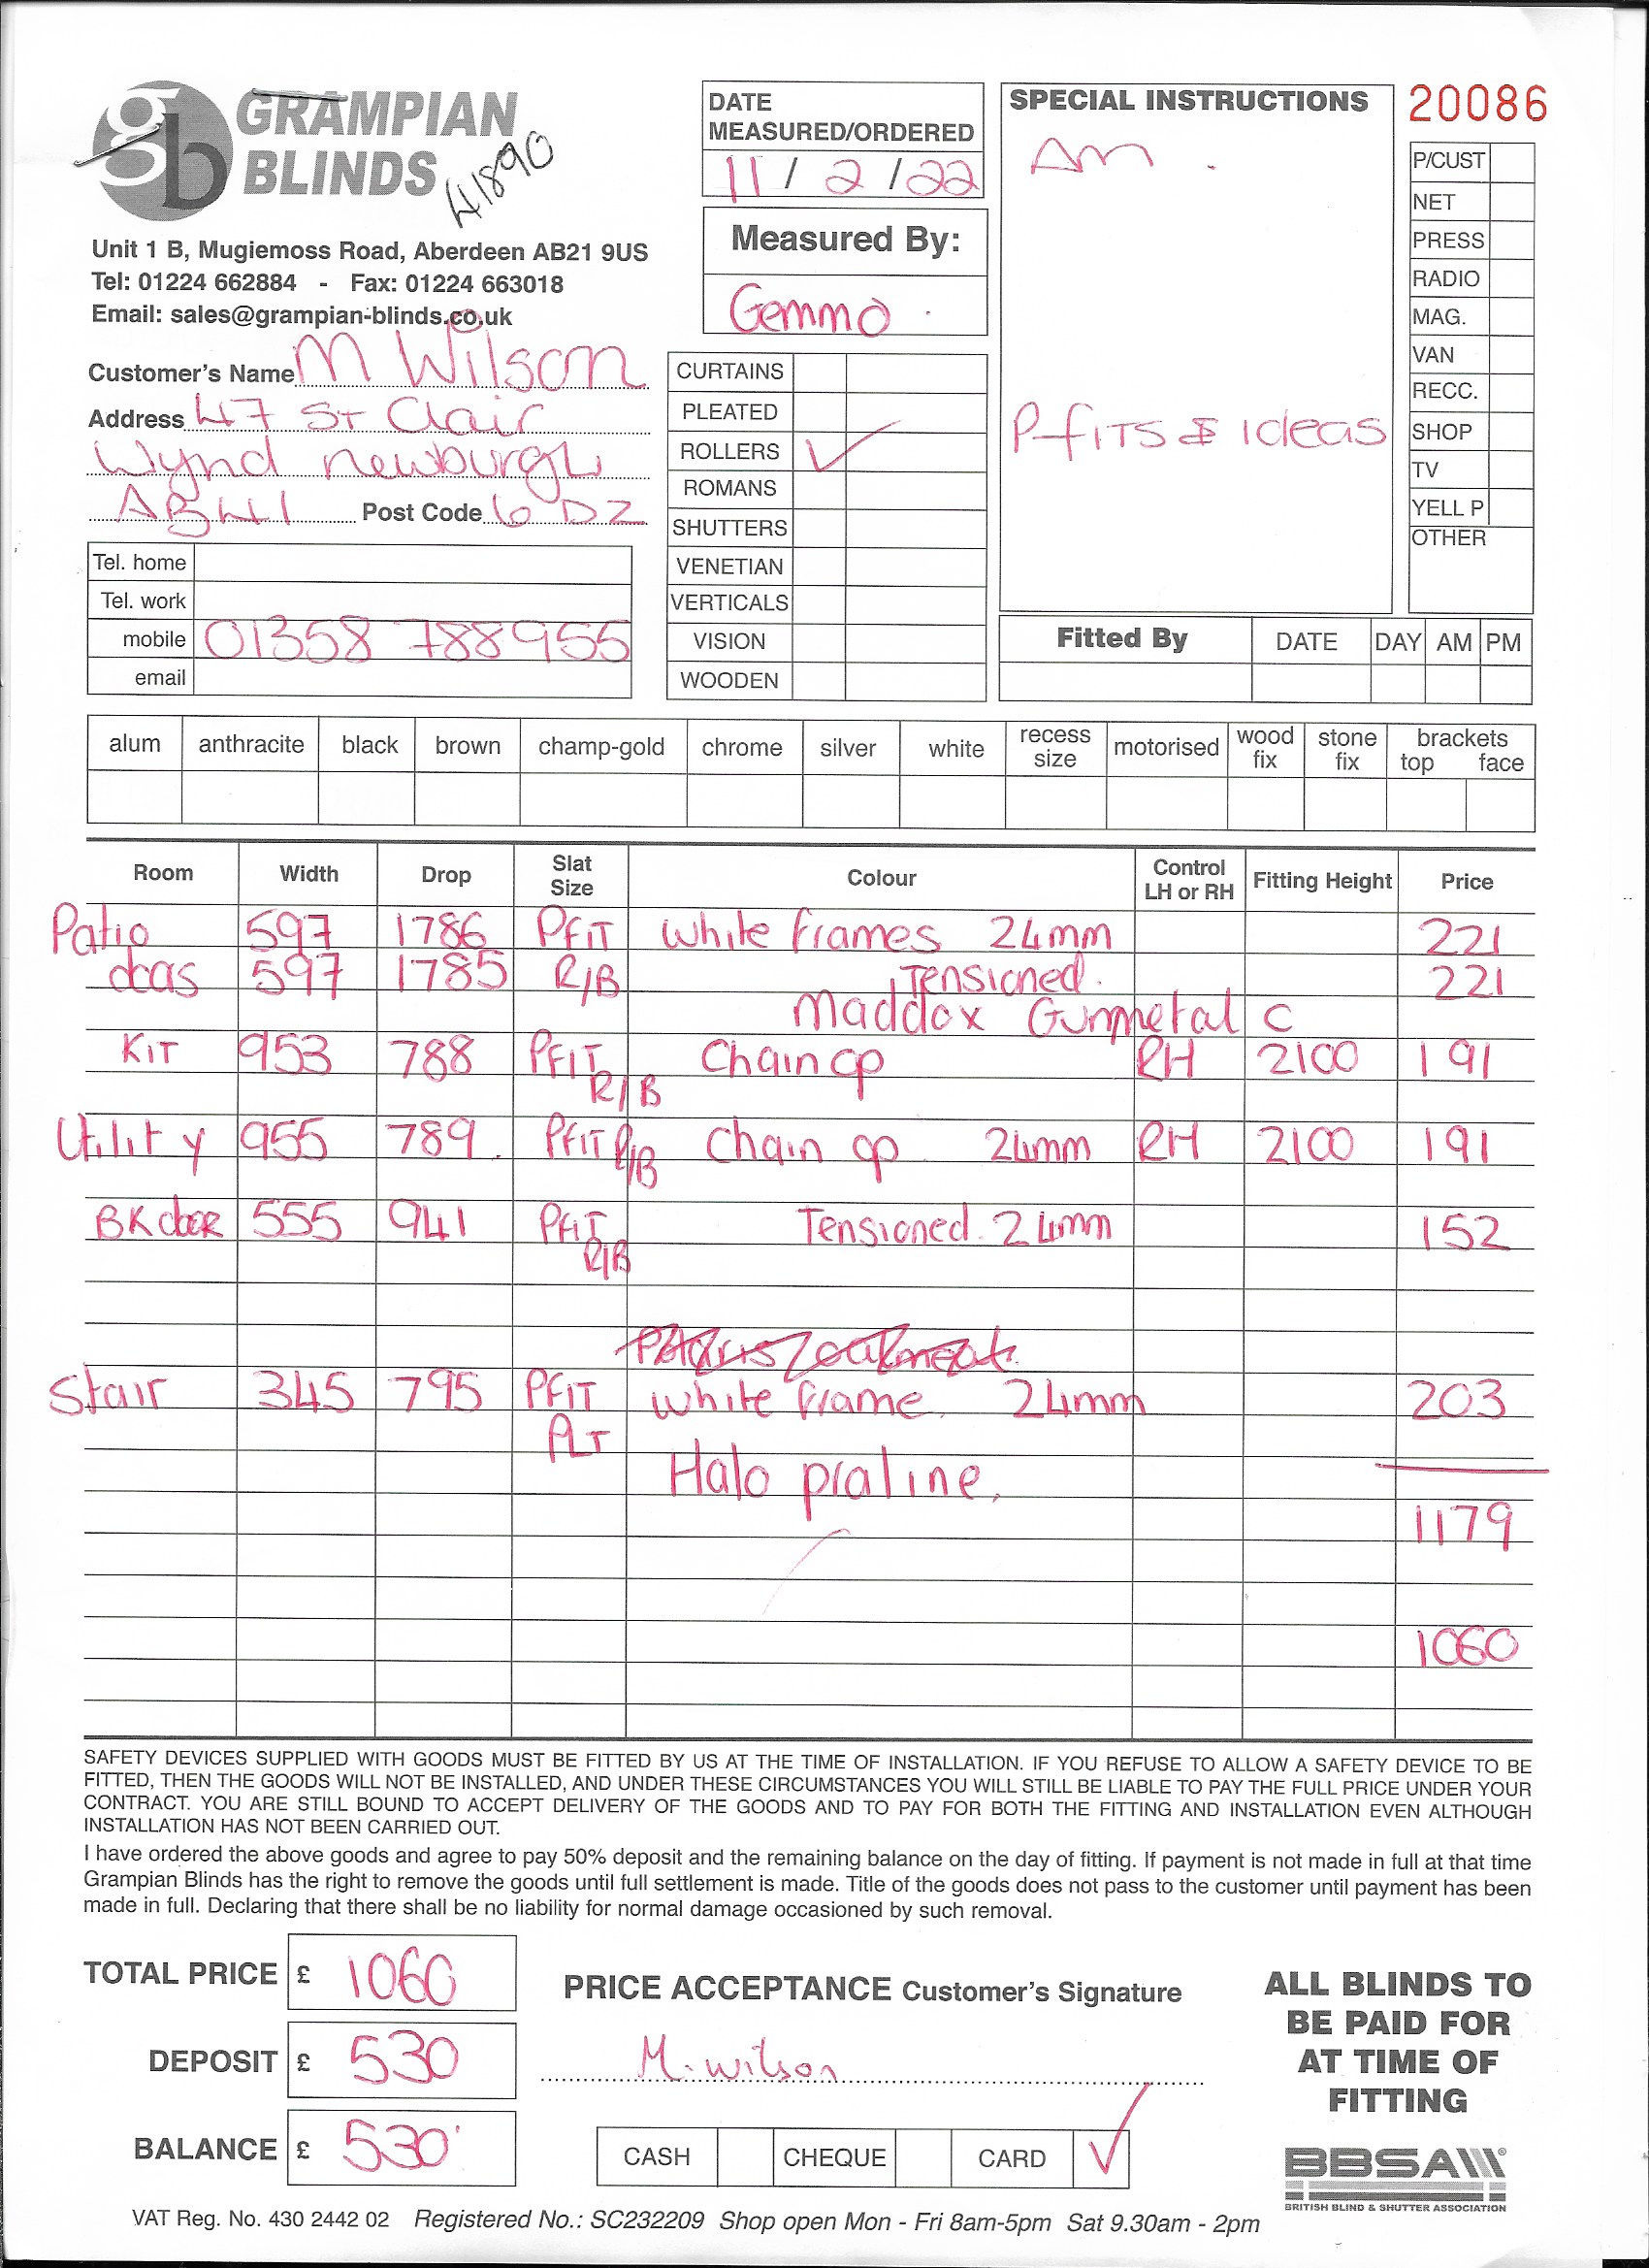 GRAMPIAN
BLINDS
41890
Unit 1 B, Mugiemoss Road, Aberdeen AB21 9US
Tel: 01224 662884 - Fax: 01224 663018
Email: sales@grampian-blinds.co.uk
Customer's Name M Wilson
Address 47 St Clair
Wynd newburgh
AB41 Post Code 6 DZ
Tel. home
Tel. work
mobile 01358 788955
email
DATE
MEASURED/ORDERED
11 / 2 / 22
Measured By:
Gemma
CURTAINS
PLEATED
ROLLERS ✓
ROMANS
SHUTTERS
VENETIAN
VERTICALS
VISION
WOODEN
SPECIAL INSTRUCTIONS
Am.
P-fiTS $ ideas
20086
P/CUST
NET
PRESS
RADIO
MAG.
VAN
RECC.
SHOP
TV
YELL P
OTHER
Fitted By DATE DAY AM PM
alum anthracite black brown champ-gold chrome silver white recess size motorised wood fix stone fix brackets top face
Room Width Drop Slat Size Colour Control LH or RH Fitting Height Price
Patio 597 1786 PFiT white frames 24mm 221
597 1785 R/B Tensioned. 221
Maddox Gunmetal C
KiT 953 788 PFiT Chain op RH 2100 191
R/B
Utility 955 789. PFiT R/B Chain op 24mm RH 2100 191
BK door 555 941 PFiT Tensioned. 24mm 152
R/B
Stair 345 795 PFiT white frame. 24mm 203
PLT
Halo praline.
1179
1060
SAFETY DEVICES SUPPLIED WITH GOODS MUST BE FITTED BY US AT THE TIME OF INSTALLATION. IF YOU REFUSE TO ALLOW A SAFETY DEVICE TO BE
FITTED, THEN THE GOODS WILL NOT BE INSTALLED, AND UNDER THESE CIRCUMSTANCES YOU WILL STILL BE LIABLE TO PAY THE FULL PRICE UNDER YOUR
CONTRACT. YOU ARE STILL BOUND TO ACCEPT DELIVERY OF THE GOODS AND TO PAY FOR BOTH THE FITTING AND INSTALLATION EVEN ALTHOUGH
INSTALLATION HAS NOT BEEN CARRIED OUT.
I have ordered the above goods and agree to pay 50% deposit and the remaining balance on the day of fitting. If payment is not made in full at that time
Grampian Blinds has the right to remove the goods until full settlement is made. Title of the goods does not pass to the customer until payment has been
made in full. Declaring that there shall be no liability for normal damage occasioned by such removal.
TOTAL PRICE £ 1060
DEPOSIT £ 530
BALANCE £ 530
PRICE ACCEPTANCE Customer's Signature
M. Wilson
CASH CHEQUE CARD ✓
ALL BLINDS TO
BE PAID FOR
AT TIME OF
FITTING
BBSA
BRITISH BLIND & SHUTTER ASSOCIATION
VAT Reg. No. 430 2442 02 Registered No.: SC232209 Shop open Mon - Fri 8am-5pm Sat 9.30am - 2pm